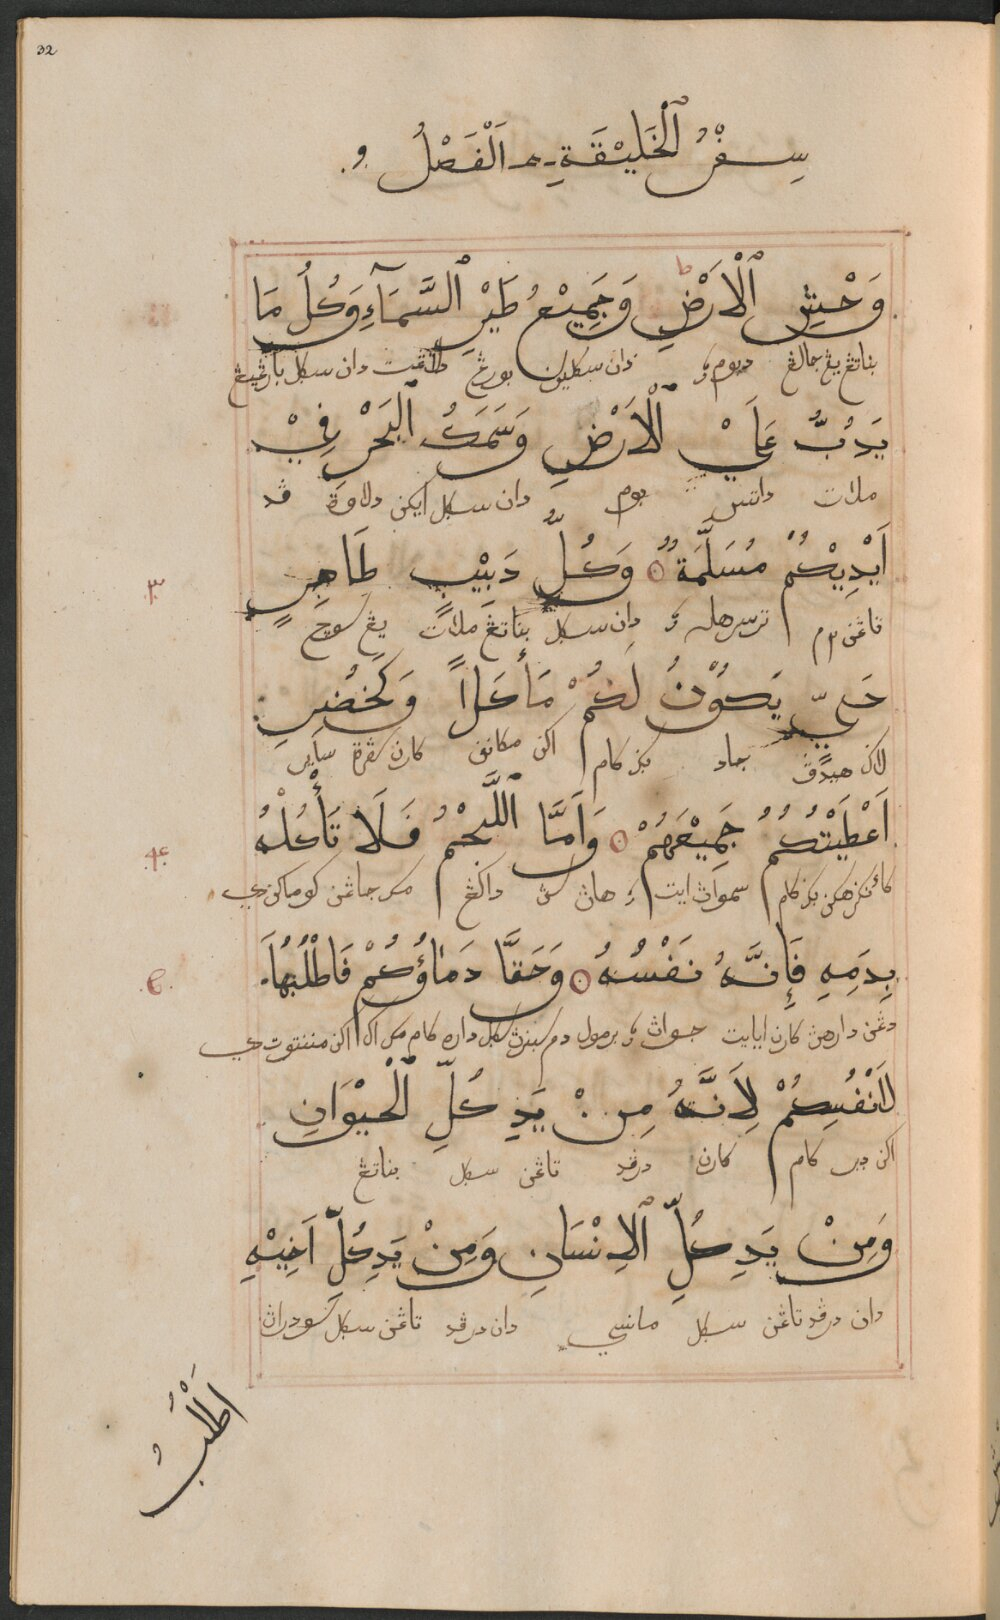 32
سِفْرُ ٱلْخَلِيْقَةِ ـ اَلْفَصْلُ ٩
وَحْشِ ٱلْاَرْضِ وَجَمِيْعُ طَيْرِ ٱلسَّمَآءِ وَكُلُّ مَا
بناتڠ يڠ جالڠ دبوم دان سكلين بورڠ دان سكل بارڠ يڠ
يَدُبُّ عَلَيْ ٱلْاَرْضِ وَسَمَكُ ٱلْبَحْرِ فِيْ
ملات داتس بوم دان سكل ايكن دلاوة ڤد
اَيْدِيْكُمْ مُسَلَّمَةٌ وَكُلُّ دَبِيْبٍ طَاهِرٍ
٣
تاڠن م ترسرهله دان سكل بناتڠ ملات يڠ سوچ
حَيٍّ يَكُوْنُ لَكُمْ مَأْكَلًا وَكَخُضَرِ
هيدڤ جاد بكر كام اكن مكانن كارن ساير
اَعْطَيْتُكُمْ جَمِيْعَهُمْ وَاَمَّا ٱللَّحْمُ فَلَا تَأْكُلْهُ
٤
بكر كام سموات ايت داكڠ مك جاڠن
بِدَمِهِ فَإِنَّهُ نَفْسُهُ وَحَقًّا دَمَاؤُكُمْ فَاطْلُبُهَا
٥
دڠن دارهن كارن ايايت جوات دم سكل داره كام مك اكن منتوت
لِاَنْفُسِكُمْ لِاَنَّهُ مِنْ يَدِ كُلِّ ٱلْحَيْوَانِ
اكن دير كام كارن درڤد تاڠن سكل بناتڠ
وَمِنْ يَدِ كُلِّ ٱلْاِنْسَانِ وَمِنْ يَدِ كُلِّ اَخِيْهِ
دان درڤد تاڠن سكل مانسي دان درڤد تاڠن سكل سودرات
اَطْلُبُ